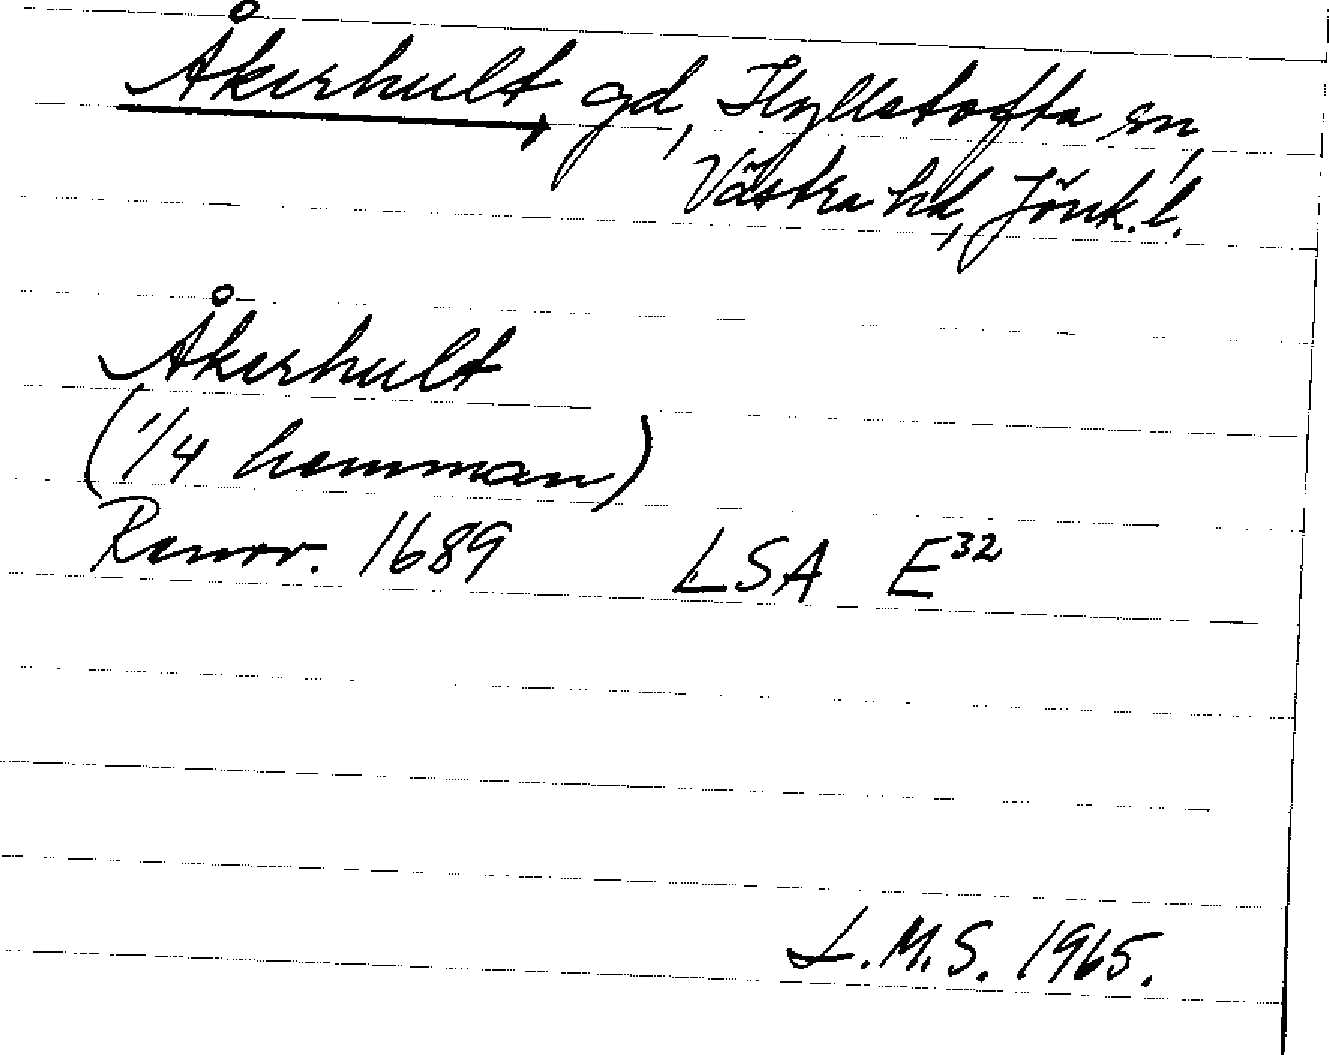 Åkerhult, gd, Hyllstofta sn,
Västra hd, Jönk. l.
Åkerhult
(1/4 hemman)
Renov. 1689 LSA E³²
L.M.S. 1965.